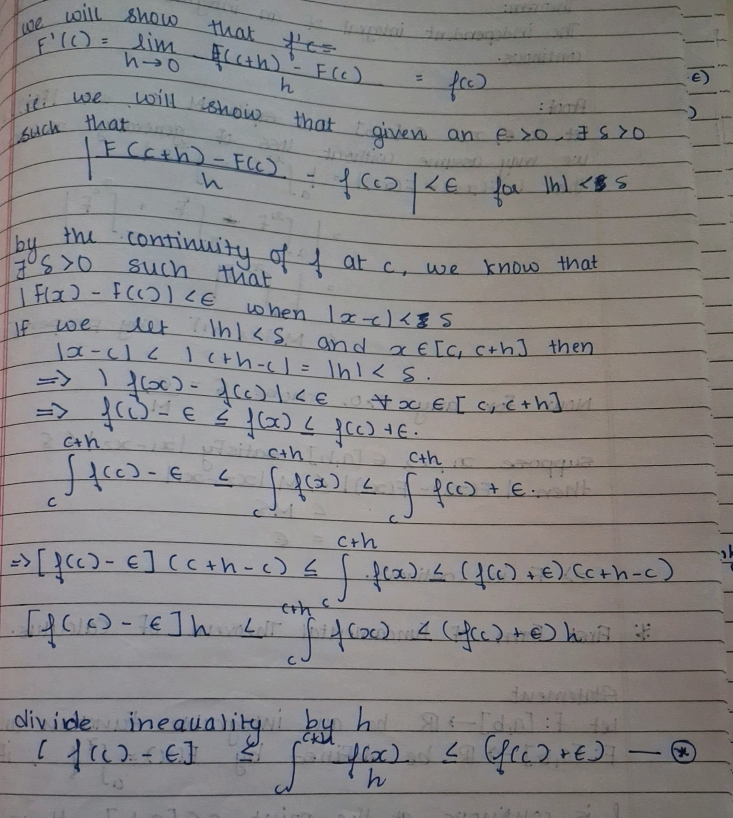 we will show that f'c=
F'(c) = lim h→0 F(c+h) - F(c) / h = f(c)
i.e. we will show that given an ϵ >0 ∃ δ >0
such that
| F(c+h) - F(c) / h - f(c) | < ϵ for |h| < δ
by the continuity of f at c, we know that
∃ δ >0 such that
|F(x) - F(c)| < ϵ when |x-c| < δ
If we let |h| < δ and x ∈ [c, c+h] then
|x-c| < |c+h-c| = |h| < δ.
=> | f(x) - f(c) | < ϵ ∀ x ∈ [c, c+h]
=> f(c) - ϵ ≤ f(x) ≤ f(c) + ϵ.
∫_c^{c+h} f(c) - ϵ ≤ ∫_c^{c+h} f(x) ≤ ∫_c^{c+h} f(c) + ϵ.
=> [f(c) - ϵ] (c+h-c) ≤ ∫_c^{c+h} f(x) ≤ (f(c) + ϵ) (c+h-c)
[f(c) - ϵ] h ≤ ∫_c^{c+h} f(x) ≤ (f(c) + ϵ) h
divide inequality by h
[ f(c) - ϵ] ≤ ∫_c^{c+h} f(x) / h ≤ (f(c) + ϵ) — ⊛